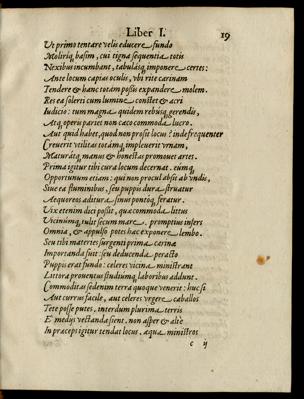 Liber I. 19
Ut primo tentare velis educere fundo
Molirique basim, cui tigna sequentia totis
Nexibus incumbant, tabulæque imponere certes:
Ante locum capias oculis, ubi rite carinam
Tendere & hanc totam possis expandere molem.
Res ea solerti cum lumine constet & acri
Iudicio: tum magna quidem rebusque gerendis,
Atque operu partes non cæco commoda lucro.
Aut quid habet, quod non prosit locus? inde frequenter
Creverit utilitas totamque impleverit urnam,
Maturatque manus & honestas promovet artes.
Prima igitur tibi cura locum decernat. eumque
Opportunum etiam: qui non procul absit ab undis,
Sive ea fluminibus, seu puppis dura struatur
Aequoreos aditura sinus pontoque feratur.
Vix etenim dici possit, qua commoda litus
Vicinumque tulit secum mare. promptius infers
Omnia, & appulso potes hac exponere lembo.
Seu tibi materies surgenti prima carina
Importanda fuit: seu deducenda peracto
Puppis erat fundo: celeres vicina ministrant
Littora proventus studiumque laboribus addunt.
Commoditas sedenim terra quoque venerit: huc si
Aut currus facile, aut celeres urgere caballos
Tete posse putes, interdum plurima terris
E' medijs vectanda sient. non asper & altè
In præceps igitur tendat locus. æqua ministros
c ij